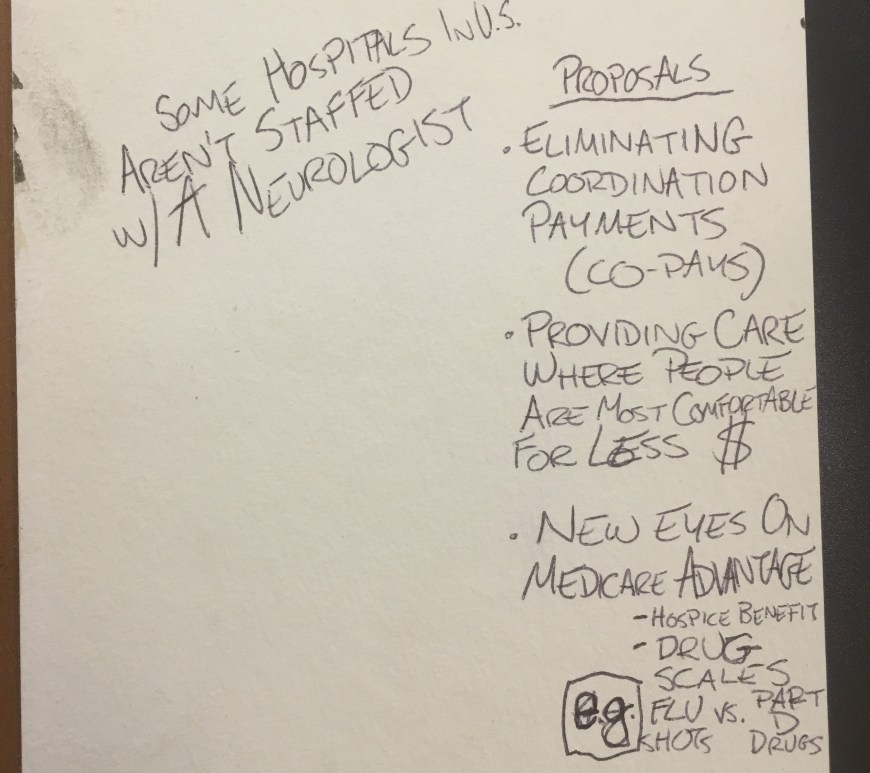 SOME HOSPITALS IN U.S.
AREN'T STAFFED
W/ A NEUROLOGIST
PROPOSALS
• ELIMINATING
COORDINATION
PAYMENTS
(CO-PAYS)
• PROVIDING CARE
WHERE PEOPLE
ARE MOST COMFORTABLE
FOR LESS $
• NEW EYES ON
MEDICARE ADVANTAGE
- HOSPICE BENEFIT
- DRUG
SCALES
e.g. FLU VS. PART
SHOTS D
DRUGS